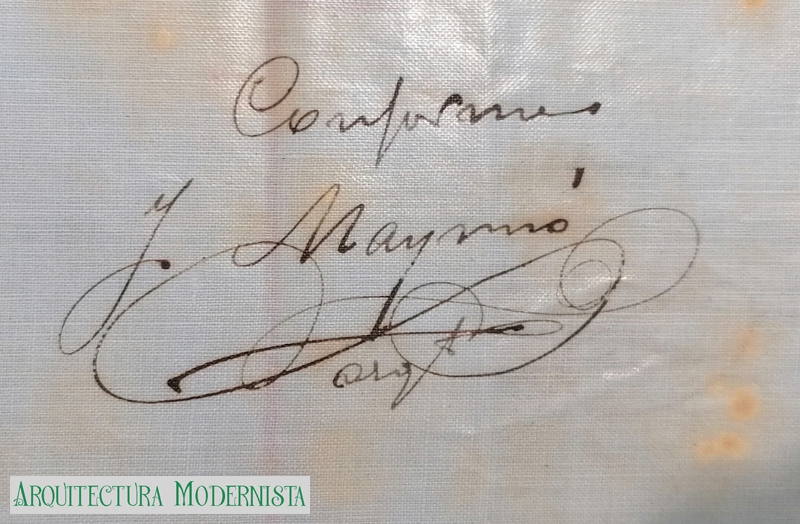 Conforme
J. Maymó
arqt
ARQUITECTURA MODERNISTA